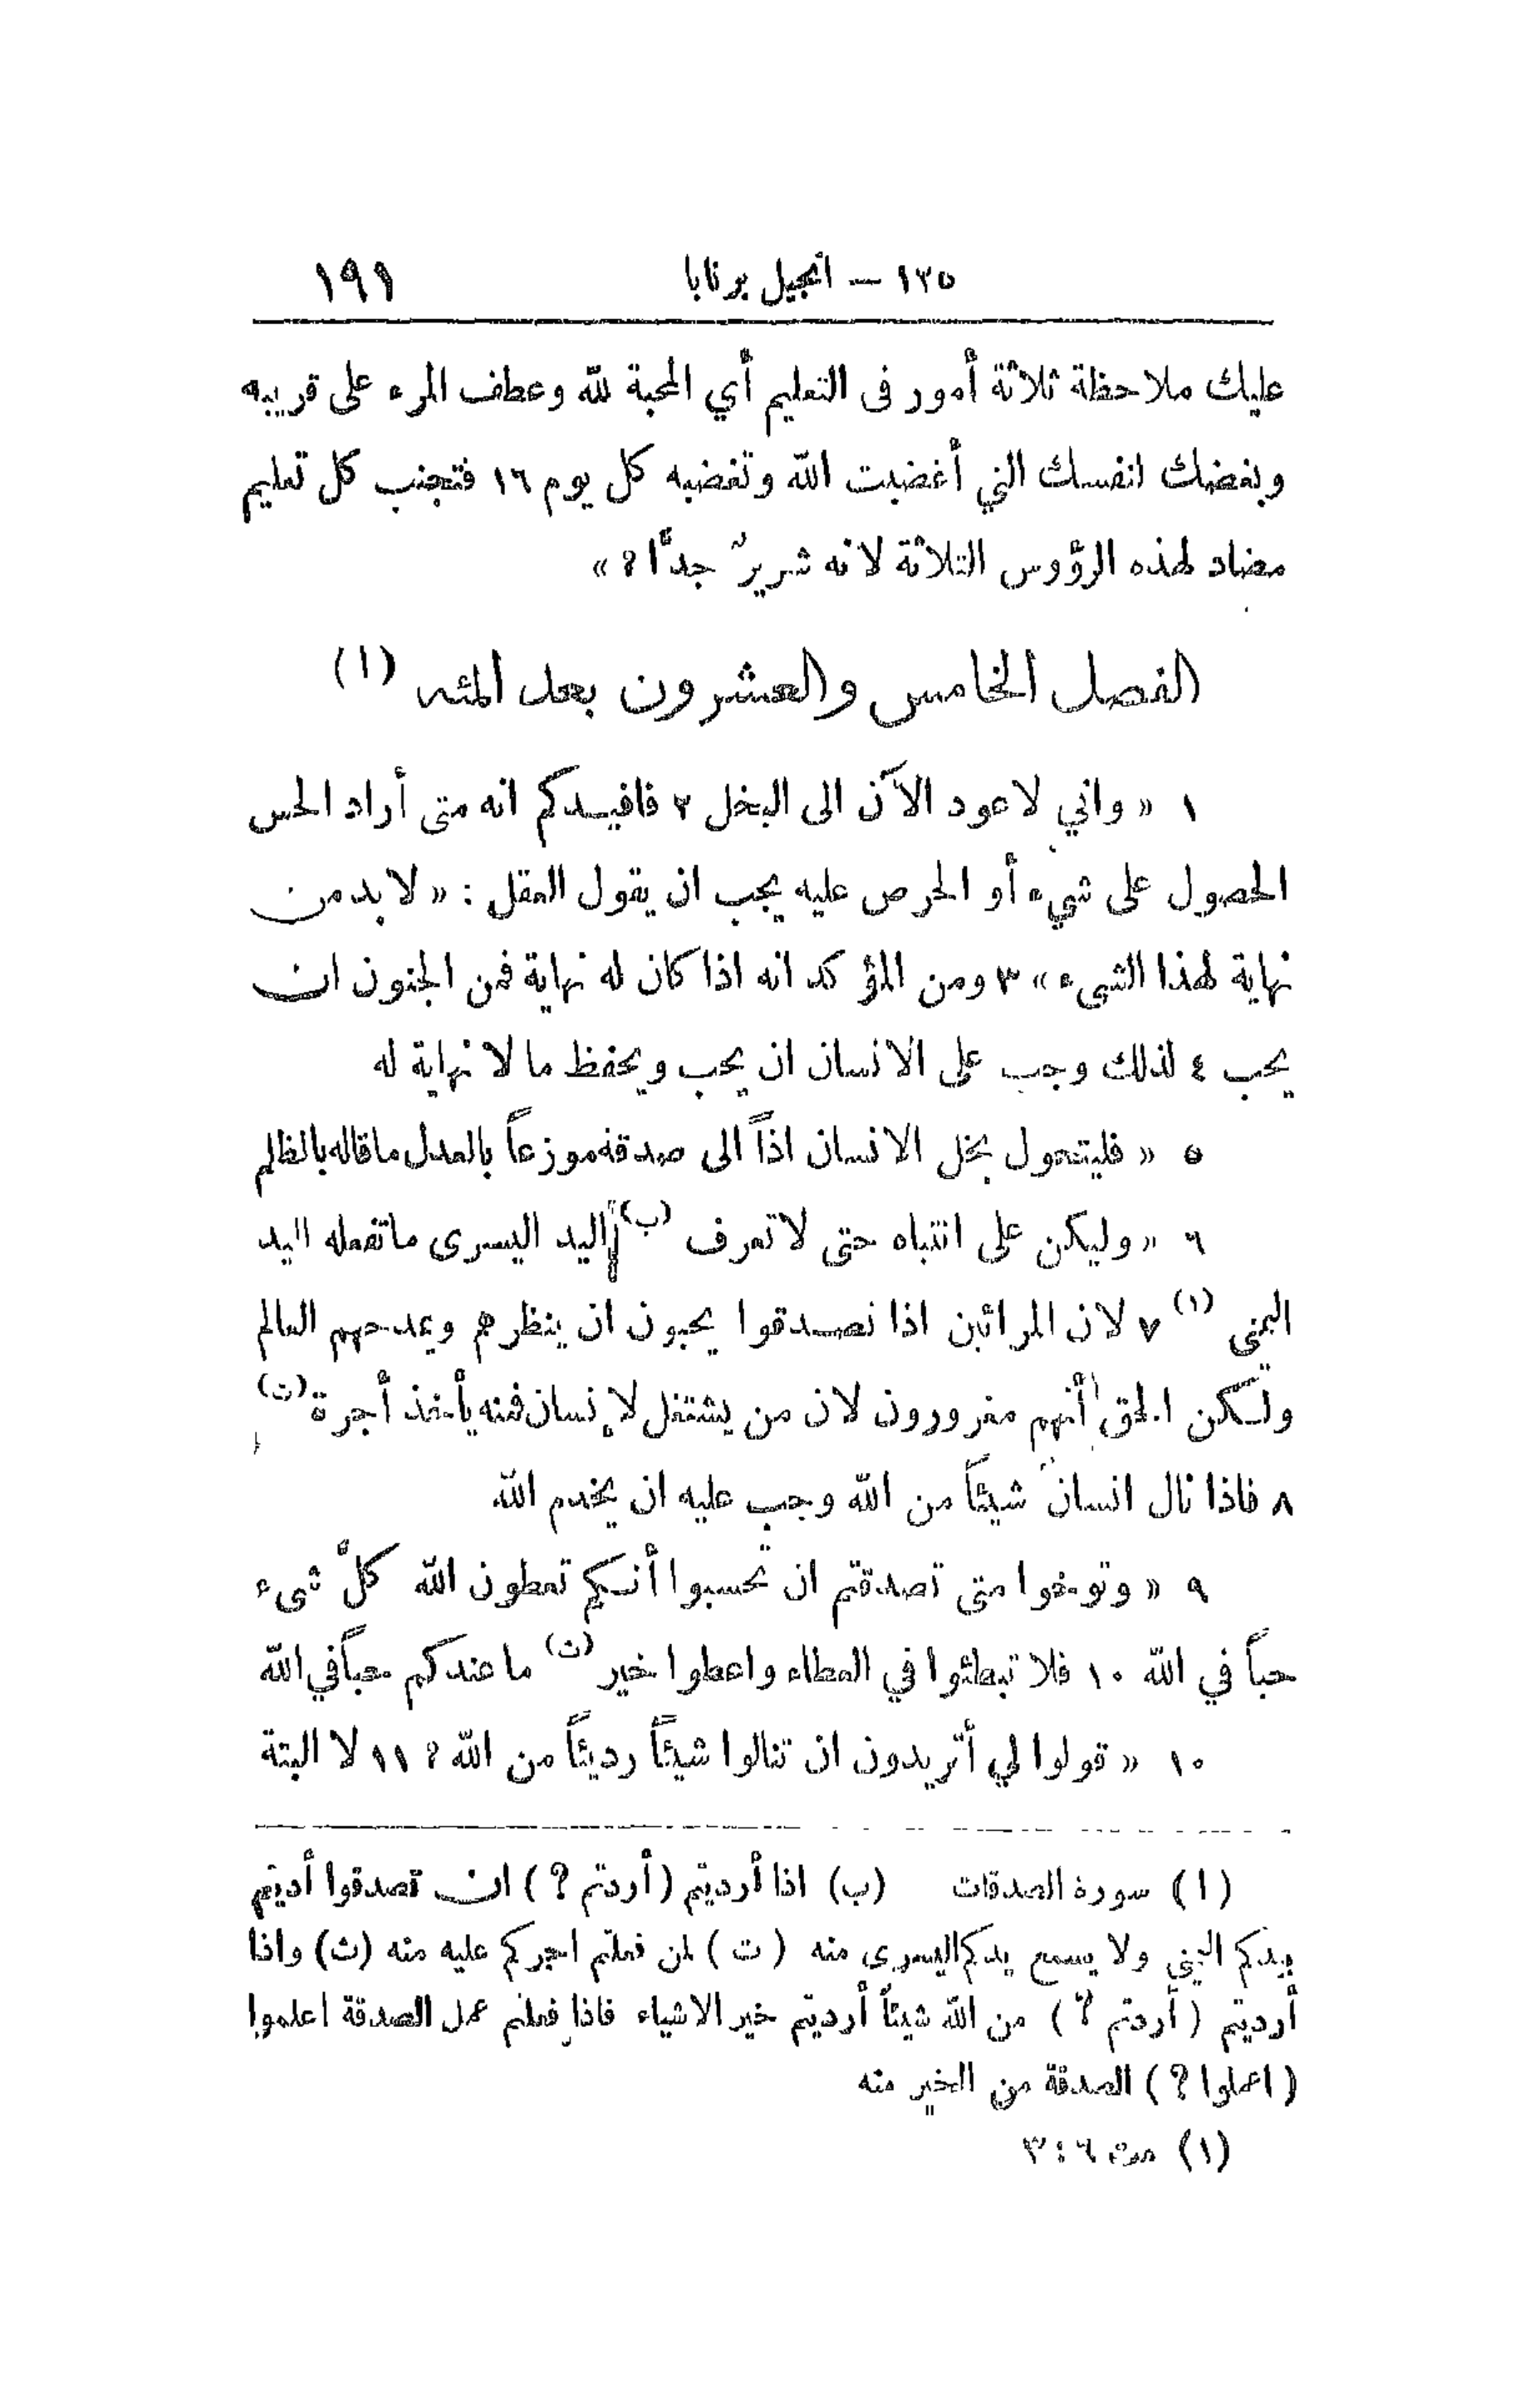 ١٢٥ – انجيل برنابا ١٩١
عليك ملاحظة ثلاثة أمور فى التعليم أي المحبة لله وعطف المرء على قريبه
وبغضك لنفسك التي أغضبت الله وتغضبه كل يوم ١٦ فتجنب كل تعليم
مضاد لهذه الرؤوس الثلاثة لانه شريرٌ جدًّا ? »
الفصل الخامس والعشرون بعد المئه (ا)
١ « واني لاعود الآن الى البخل ٢ فافيدكم انه متى أراد الحس
الحصول على شيء أو الحرص عليه يجب ان يقول العقل : « لا بد من
نهاية لهذا الشيء » ٣ ومن المؤكد انه اذا كان له نهاية فمن الجنون ان
يحب ٤ لذلك وجب على الانسان ان يحب ويحفظ ما لا نهاية له
٥ « فليتحول بخل الانسان اذاً الى صدقة موزعاً بالعدل ما قاله بالظلم
٦ « وليكن على انتباه حتى لا تعرف (ب) اليد اليسرى ما تفعله اليد
اليمنى (١) ٧ لان المرائين اذا تصدقوا يحبون ان ينظرهم ويمدحهم العالم
ولكن الحق أنهم مغرورون لان من يشتغل لإنسان فمنه يأخذ أجرة (ت)
٨ فاذا نال انسان شيئاً من الله وجب عليه ان يخدم الله
٩ « وتوخوا متى تصدقتم ان تحسبوا أنكم تعطون الله كلَّ شيء
حباً في الله ١٠ فلا تبطئوا في العطاء واعطوا خير (ث) ما عندكم حباً في الله
١٠ « قولوا لي أتريدون ان تنالوا شيئاً رديئاً من الله ? ١١ لا البتة
(ا) سورة الصدقات (ب) اذا أرديتم (أردتم ?) ان تصدقوا أديتم
بيدكم اليمنى ولا يسمع يدكم اليسرى منه (ت) لمن فعلتم اجركم عليه منه (ث) واذا
أرديتم (أردتم ?) من الله شيئاً أرديتم خير الاشياء فاذا فعلتم عمل الصدقة اعلموا
(اعملوا ?) الصدقة من الخير منه
(١) مت ٦ : ٣